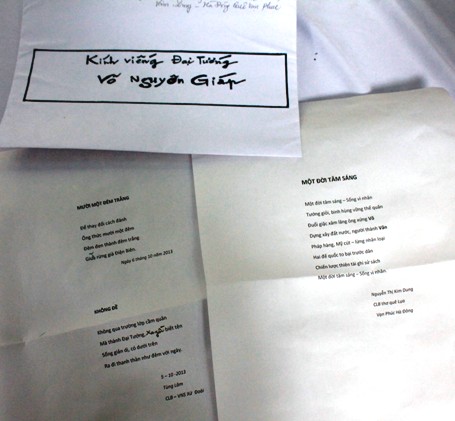 Kính viếng Đại Tướng
Võ Nguyên Giáp
MƯỜI MỘT ĐÊM TRẮNG
Để thay đổi cách đánh
Ông thức mười một đêm
Đêm đen thành đêm trắng
Giữa rừng già Điện Biên.
Ngày 6 tháng 10 năm 2013
KHÔNG ĐỀ
Không qua trường lớp cầm quân
Mà thành Đại Tướng, biệt tên
Sống giản dị, có dưới trên
Ra đi thanh thản như đêm với ngày.
5 – 10 -2013
Tùng Lâm
CLB – VNS Xứ Đoài
MỘT ĐỜI TÂM SÁNG
Một đời tâm sáng – Sống vì nhân
Tướng giỏi, binh hùng vững thế quân
Đuổi giặc xâm lăng ông xứng Võ
Dựng xây đất nước, người thành Văn
Pháp hàng, Mỹ cút – lừng nhân loại
Hai đế quốc to bại trước dân
Chiến lược thiên tài ghi sử sách
Một đời tâm sáng – Sống vì nhân.
Nguyễn Thị Kim Dung
CLB thơ quê Lụa
Vạn Phúc Hà Đông